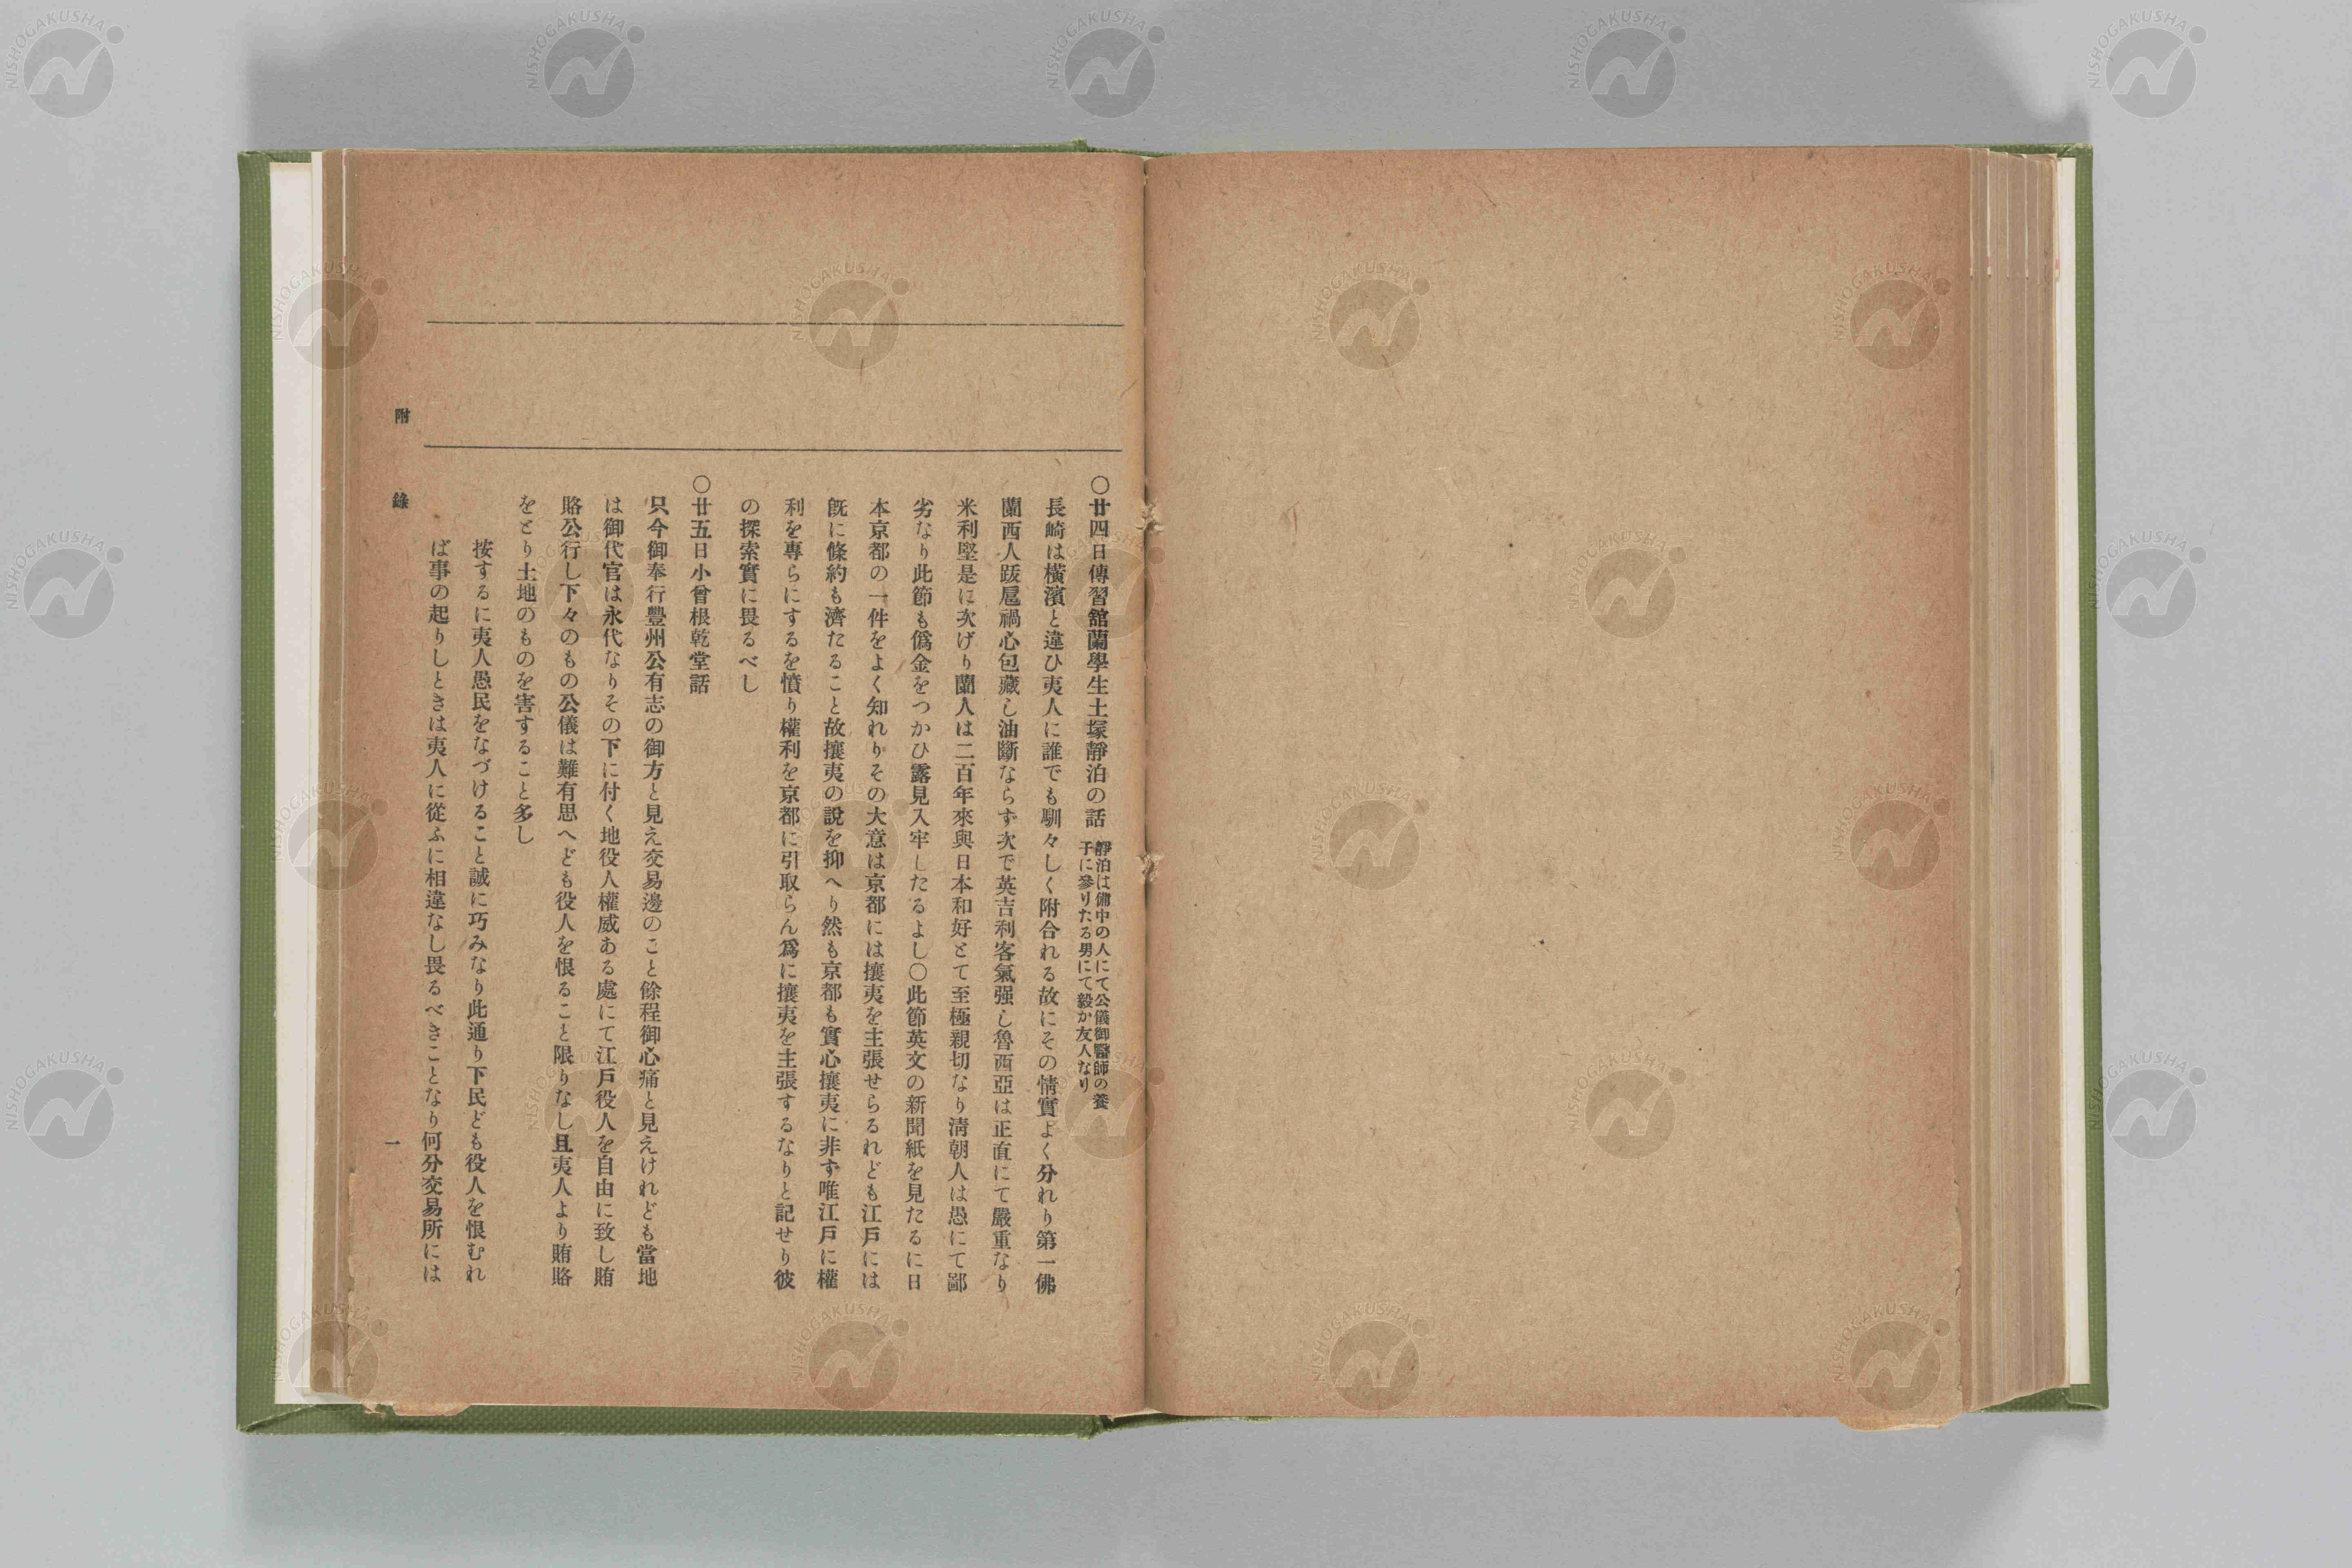 〇廿四日傳習舘蘭學生土塚靜泊の話 靜泊は備中の人にて公儀御醫師の養
子に參りたる男にて毅か友人なり
長崎は橫濱と違ひ夷人に誰でも馴々しく附合れる故にその情實よく分れり第一佛
蘭西人跋扈禍心包藏し油斷ならず次で英吉利客氣强し魯西亞は正直にて嚴重なり
米利堅是に次げり蘭人は二百年來與日本和好とて至極親切なり淸朝人は愚にて鄙
劣なり此節も僞金をつかひ露見入牢したるよし〇此節英文の新聞紙を見たるに日
本京都の一件をよく知れりその大意は京都には攘夷を主張せらるれども江戶には
旣に條約も濟たること故攘夷の說を抑へり然も京都も實心攘夷に非ず唯江戶に權
利を專らにするを憤り權利を京都に引取らん爲に攘夷を主張するなりと記せり彼
の探索實に畏るべし
〇廿五日小曾根乾堂話
只今御奉行豐州公有志の御方と見え交易邊のこと餘程御心痛と見えけれども當地
は御代官は永代なりその下に付く地役人權威ある處にて江戶役人を自由に致し賄
賂公行し下々のもの公儀は難有思へども役人を恨ること限りなし且夷人より賄賂
をとり土地のものを害すること多し
按するに夷人愚民をなづけること誠に巧みなり此通り下民ども役人を恨むれ
ば事の起りしときは夷人に從ふに相違なし畏るべきことなり何分交易所には
附錄
一
NISHOGAKUSHA